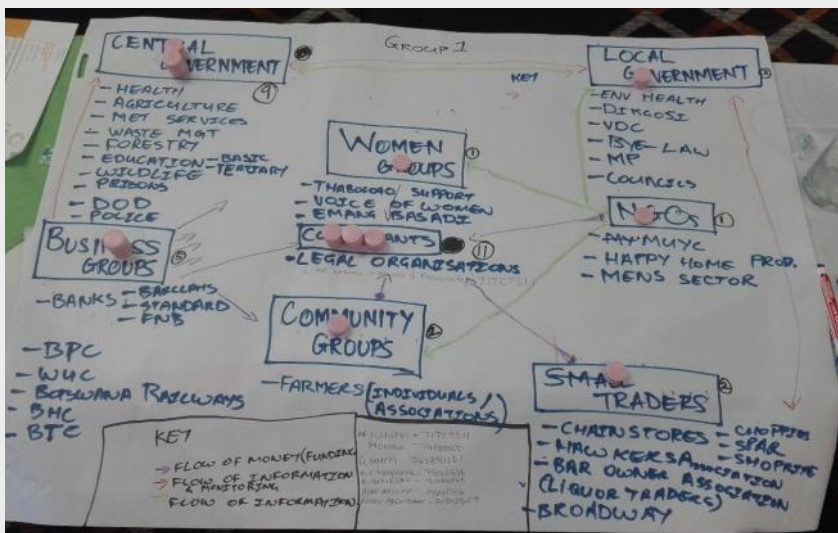 GROUP 1
CENTRAL GOVERNMENT
9
- HEALTH
- AGRICULTURE
- MET SERVICES
- WASTE MGT
- FORESTRY
- EDUCATION - BASIC
- TERTIARY
- WILDLIFE
- PRISONS
- DOD
- POLICE
KEY
LOCAL GOVERNMENT
- ENV HEALTH
- DIKGOSI
- VDC
- BYE-LAW
- MP
- COUNCILS
WOMEN GROUPS
1
SUPPORT
- VOICE OF WOMEN
- EMANG BASADI
NGOs
1
- HAPPY HOME PROD.
- MENS SECTOR
11
- LEGAL ORGANISATIONS
BUSINESS GROUPS
- BANKS - BARCLAYS
- STANDARD
- FNB
- BPC
- WUC
- BOTSWANA RAILWAYS
- BHC
- BTC
COMMUNITY GROUPS
2
- FARMERS (INDIVIDUALS/
ASSOCIATIONS)
SMALL TRADERS
2
- CHAINSTORES - CHOPPIES
- SPAR
- SHOPRITE
- HAWKERS ASSOCIATION
- BAR OWNER ASSOCIATION
(LIQUOR TRADERS)
- BROADWAY
KEY
FLOW OF MONEY (FUNDING
FLOW OF INFORMATION
& MONITORING
FLOW OF INFORMATION